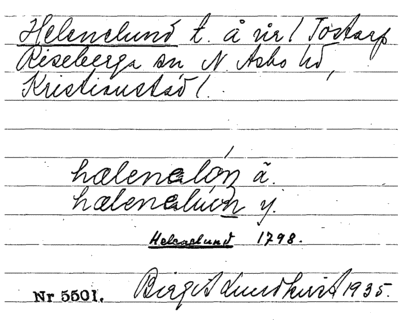 Helenelund t. å nr 1 Tostarp
Riseberga sn N Åsbo hd,
Kristianstad l.
hælenalón ä.
hælenaluón y.
Helenelund 1798.
Nr 5501. Birgit Lundkvist 1935.